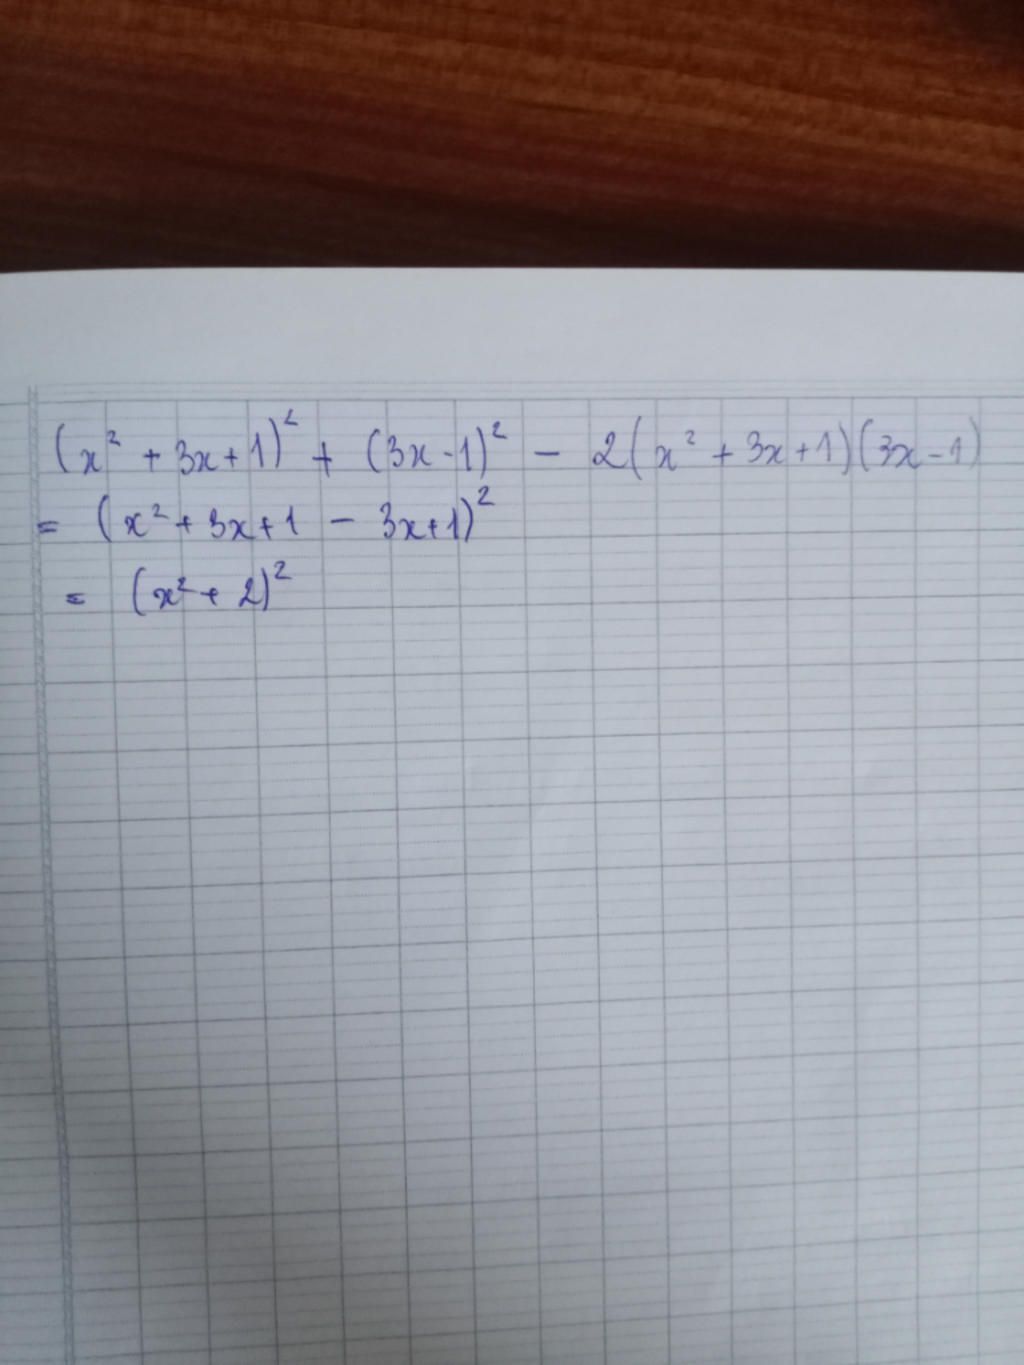 (x² + 3x + 1)² + (3x - 1)² - 2(x² + 3x + 1)(3x - 1)
= (x² + 3x + 1 - 3x + 1)²
= (x² + 2)²